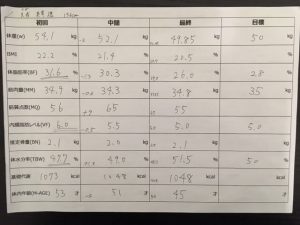 初回 中間 最終 目標
体重(w) 54.1 kg 52.1 kg 49.85 kg 50 kg
BMI 22.2 21.4 20.5
体脂肪率(BF) 31.6 % 30.3 % 26.0 % 28 %
筋肉量(MM) 34.9 kg -0.6 34.3 kg 34.8 kg 35 kg
筋質点数(MQ) 56 +9 65 55
内臓脂肪レベル(VF) 6.0 -0.5 5.5 5.0 5.0
推定骨量(BN) 2.1 kg 2.0 kg 2.1 kg kg
体水分率(TBW) 47.7 % 49.0 % 51.5 % 50 %
基礎代謝 1073 kcal 1048 kcal 1048 kcal kcal
体内年齢(M-AGE) 53 才 -2 51 才 45 才 才